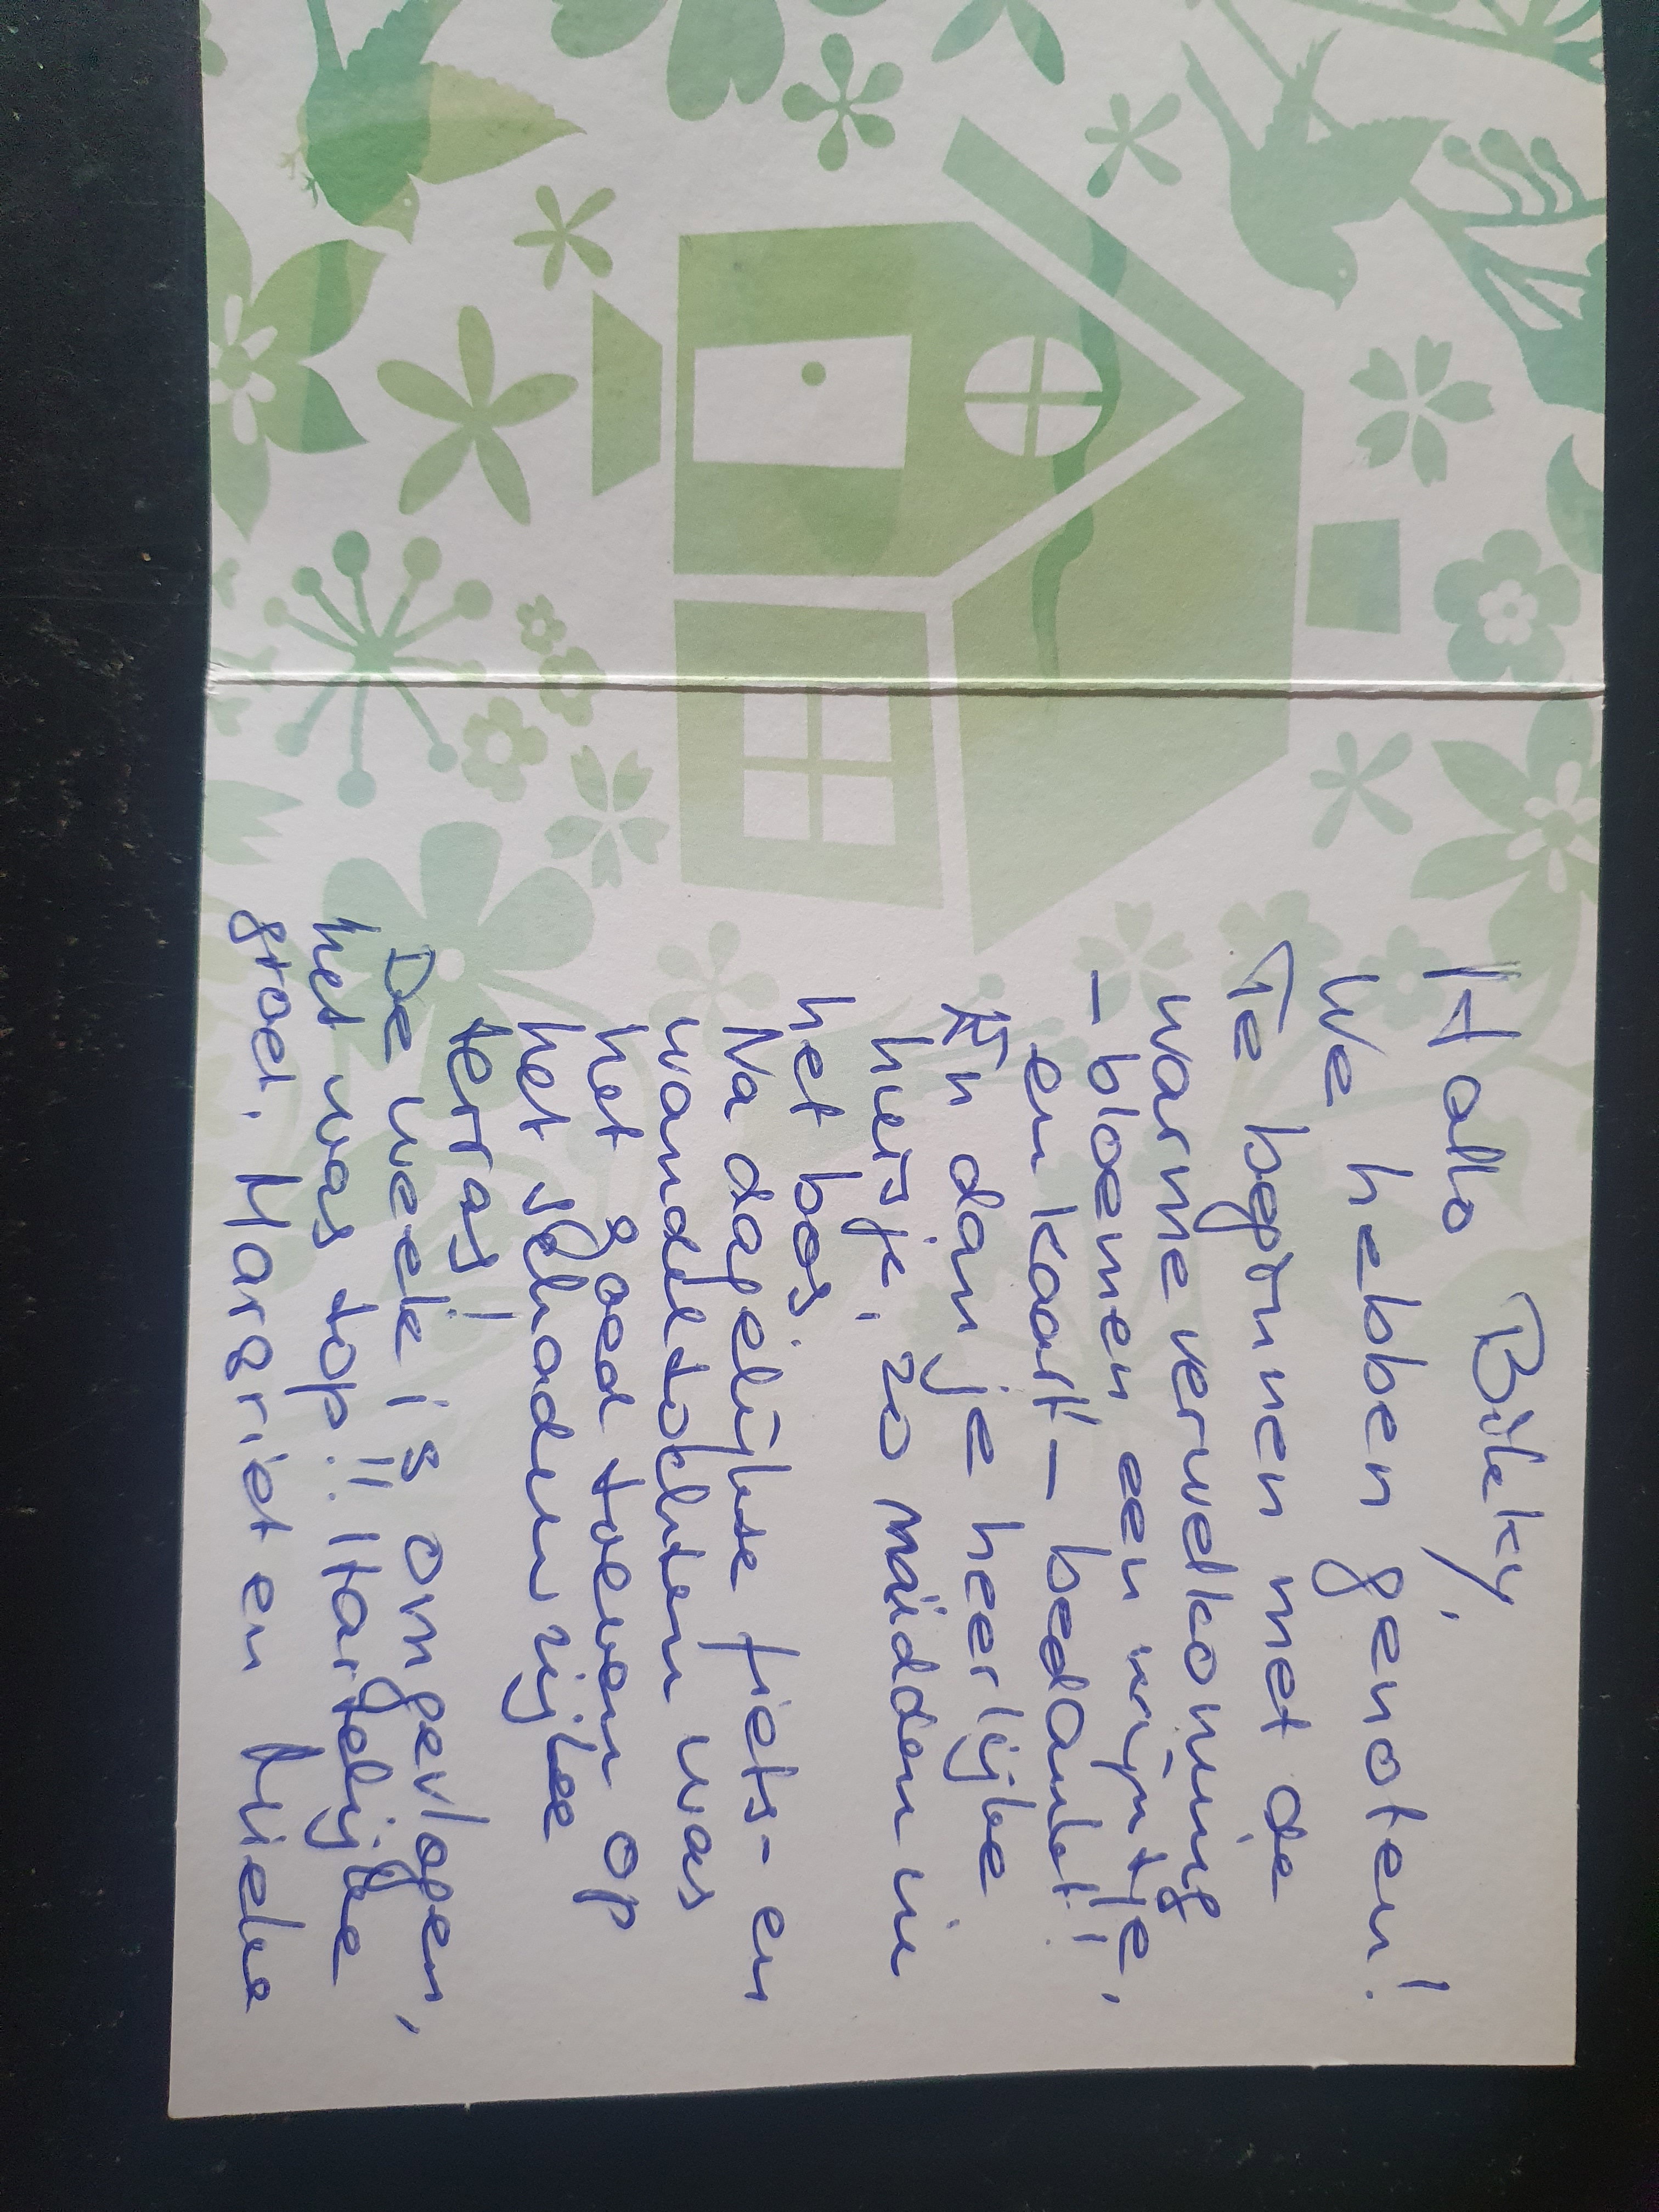 Hallo Bileky,
We hebben genoten!
Te beginnen met de
warme verwelkoming
- bloemen een wijntje,
en kaart - bedankt!!
En dan je heerlijke
huisje, zo midden in
het bos.
Na dagelijkse fiets- en
wandeltochten was
het goed toeven op
het schaduwrijke
terras!
De week is omgevlogen,
het was top!!! Hartelijke
groet. Margriet en Mieke